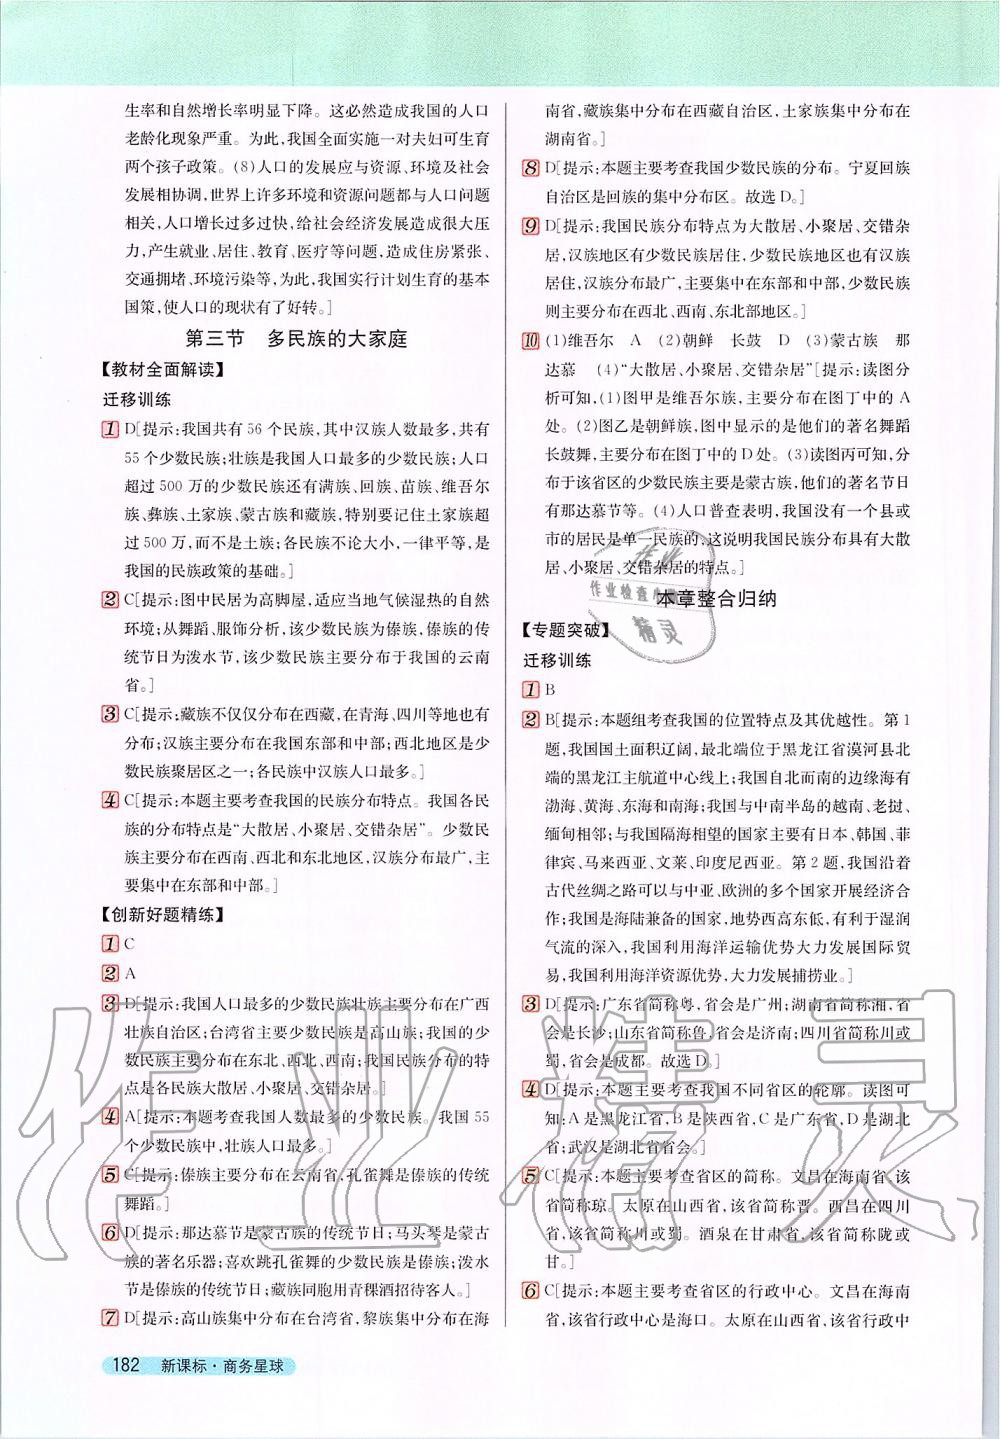 生率和自然增长率明显下降。这必然造成我国的人口
老龄化现象严重。为此,我国全面实施一对夫妇可生育
两个孩子政策。(8)人口的发展应与资源、环境及社会
发展相协调,世界上许多环境和资源问题都与人口问题
相关,人口增长过多过快,给社会经济发展造成很大压
力,产生就业、居住、教育、医疗等问题,造成住房紧张、
交通拥堵、环境污染等,为此,我国实行计划生育的基本
国策,使人口的现状有了好转。]
第三节 多民族的大家庭
【教材全面解读】
迁移训练
1 D[提示:我国共有 56 个民族,其中汉族人数最多,共有
55 个少数民族;壮族是我国人口最多的少数民族;人口
超过 500 万的少数民族还有满族、回族、苗族、维吾尔
族、彝族、土家族、蒙古族和藏族,特别要记住土家族超
过 500 万,而不是土族;各民族不论大小,一律平等,是
我国的民族政策的基础。]
2 C[提示:图中民居为高脚屋,适应当地气候湿热的自然
环境;从舞蹈、服饰分析,该少数民族为傣族,傣族的传
统节日为泼水节,该少数民族主要分布于我国的云南
省。]
3 C[提示:藏族不仅仅分布在西藏,在青海、四川等地也有
分布;汉族主要分布在我国东部和中部;西北地区是少
数民族聚居区之一;各民族中汉族人口最多。]
4 C[提示:本题主要考查我国的民族分布特点。我国各民
族的分布特点是“大散居、小聚居、交错杂居”。少数民
族主要分布在西南、西北和东北地区,汉族分布最广,主
要集中在东部和中部。]
【创新好题精练】
1 C
2 A
3 D[提示:我国人口最多的少数民族壮族主要分布在广西
壮族自治区;台湾省主要少数民族是高山族;我国的少
数民族主要分布在东北、西北、西南;我国民族分布的特
点是各民族大散居、小聚居、交错杂居。]
4 A[提示:本题考查我国人数最多的少数民族。我国 55
个少数民族中,壮族人口最多。]
5 C[提示:傣族主要分布在云南省,孔雀舞是傣族的传统
舞蹈。]
6 D[提示:那达慕节是蒙古族的传统节日;马头琴是蒙古
族的著名乐器;喜欢跳孔雀舞的少数民族是傣族;泼水
节是傣族的传统节日;藏族同胞用青稞酒招待客人。]
7 D[提示:高山族集中分布在台湾省,黎族集中分布在海
182 新课标·商务星球
南省,藏族集中分布在西藏自治区,土家族集中分布在
湖南省。]
8 D[提示:本题主要考查我国少数民族的分布。宁夏回族
自治区是回族的集中分布区。故选 D。]
9 D[提示:我国民族分布特点为大散居、小聚居、交错杂
居,汉族地区有少数民族居住,少数民族地区也有汉族
居住,汉族分布最广,主要集中在东部和中部,少数民族
则主要分布在西北、西南、东北部地区。]
10 (1)维吾尔 A (2)朝鲜 长鼓 D (3)蒙古族 那
达慕 (4)“大散居、小聚居、交错杂居”[提示:读图分
析可知,(1)图甲是维吾尔族,主要分布在图丁中的 A
处。(2)图乙是朝鲜族,图中显示的是他们的著名舞蹈
长鼓舞,主要分布在图丁中的 D 处。(3)读图丙可知,分
布于该省区的少数民族主要是蒙古族,他们的著名节日
有那达慕节等。(4)人口普查表明,我国没有一个县或
市的居民是单一民族的,这说明我国民族分布具有大散
居、小聚居、交错杂居的特点。]
本章整合归纳
【专题突破】
迁移训练
1 B
2 B[提示:本题组考查我国的位置特点及其优越性。第 1
题,我国国土面积辽阔,最北端位于黑龙江省漠河县北
端的黑龙江主航道中心线上;我国自北而南的边缘海有
渤海、黄海、东海和南海;我国与中南半岛的越南、老挝、
缅甸相邻;与我国隔海相望的国家主要有日本、韩国、菲
律宾、马来西亚、文莱、印度尼西亚。第 2 题,我国沿着
古代丝绸之路可以与中亚、欧洲的多个国家开展经济合
作;我国是海陆兼备的国家,地势西高东低,有利于湿润
气流的深入,我国利用海洋运输优势大力发展国际贸
易,我国利用海洋资源优势,大力发展捕捞业。]
3 D[提示:广东省简称粤,省会是广州;湖南省简称湘,省
会是长沙;山东省简称鲁,省会是济南;四川省简称川或
蜀,省会是成都。故选 D。]
4 D[提示:本题主要考查我国不同省区的轮廓。读图可
知:A 是黑龙江省,B 是陕西省,C 是广东省,D 是湖北
省;武汉是湖北省省会。]
5 C[提示:本题主要考查省区的简称。文昌在海南省,该
省简称琼。太原在山西省,该省简称晋。西昌在四川
省,该省简称川或蜀。酒泉在甘肃省,该省简称陇或
甘。]
6 C[提示:本题主要考查省区的行政中心。文昌在海南
省,该省行政中心是海口。太原在山西省,该省行政中
作业
作业检查小
精灵
作业精灵